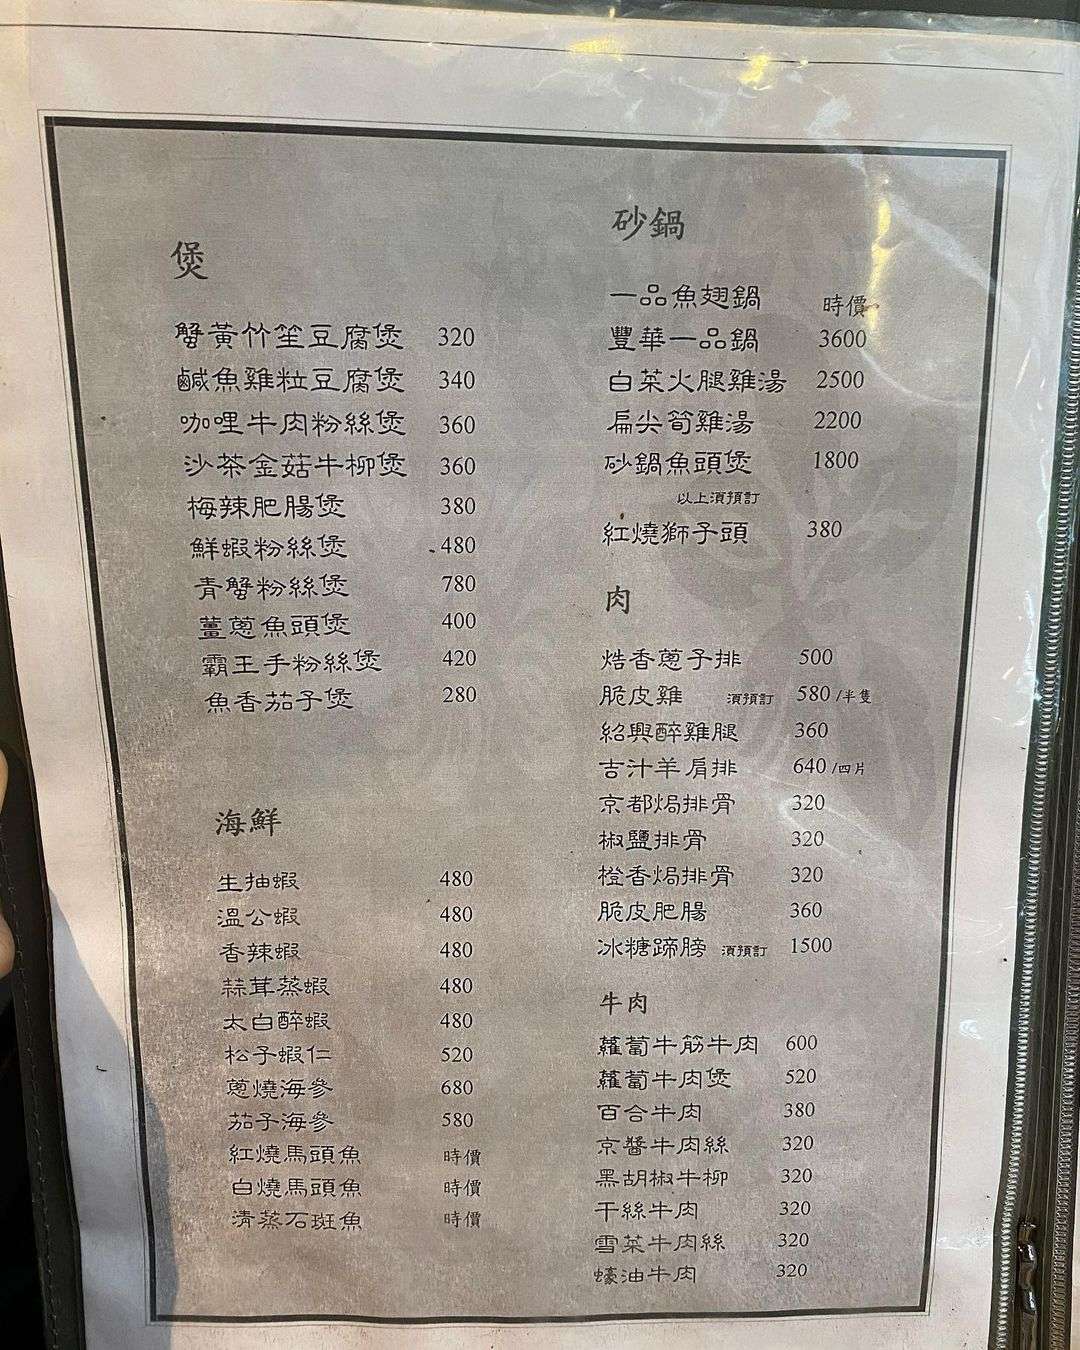 煲
蟹黃竹笙豆腐煲 320
鹹魚雞粒豆腐煲 340
咖哩牛肉粉絲煲 360
沙茶金菇牛柳煲 360
梅辣肥腸煲 380
鮮蝦粉絲煲 480
青蟹粉絲煲 780
薑蔥魚頭煲 400
霸王手粉絲煲 420
魚香茄子煲 280
海鮮
生抽蝦 480
溫公蝦 480
香辣蝦 480
蒜茸蒸蝦 480
太白醉蝦 480
松子蝦仁 520
蔥燒海參 680
茄子海參 580
紅燒馬頭魚 時價
白燒馬頭魚 時價
清蒸石斑魚 時價
砂鍋
一品魚翅鍋 時價
豐華一品鍋 3600
白菜火腿雞湯 2500
扁尖筍雞湯 2200
砂鍋魚頭煲 1800
以上須預訂
紅燒獅子頭 380
肉
焅香蔥子排 500
脆皮雞 須預訂 580/半隻
紹興醉雞腿 360
吉汁羊肩排 640/四片
京都焗排骨 320
椒鹽排骨 320
橙香焗排骨 320
脆皮肥腸 360
冰糖蹄膀 須預訂 1500
牛肉
蘿蔔牛筋牛肉 600
蘿蔔牛肉煲 520
百合牛肉 380
京醬牛肉絲 320
黑胡椒牛柳 320
干絲牛肉 320
雪菜牛肉絲 320
蠔油牛肉 320